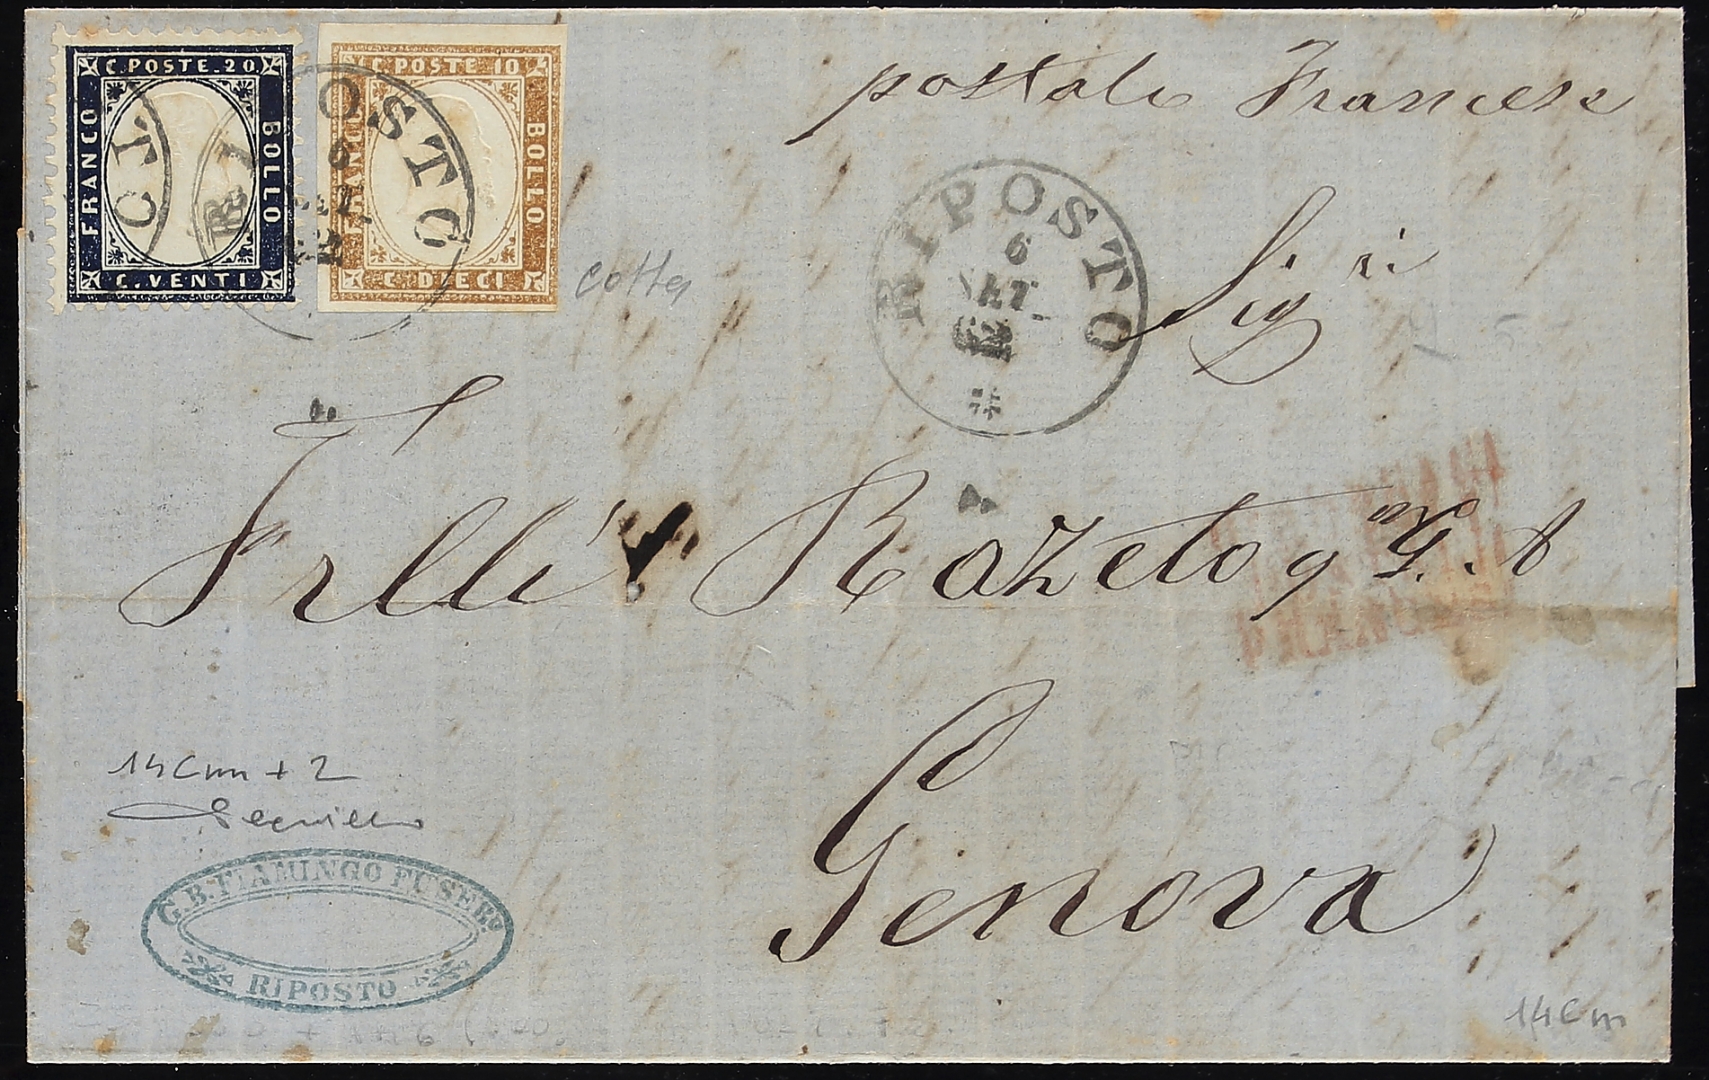 C. POSTE. 20
FRANCO
BOLLO
C. VENTI
C. POSTE 10
FRANCO
BOLLO
C. DIECI
RIPOSTO
6
SET
62
postale Francese
RIPOSTO
6
SET
62
cotta
Sig.ri
Frlli Razeto q.m G. A
Genova
14 Cm + 2
G. B. FIAMINGO FUSERO.
RIPOSTO
14 Cm